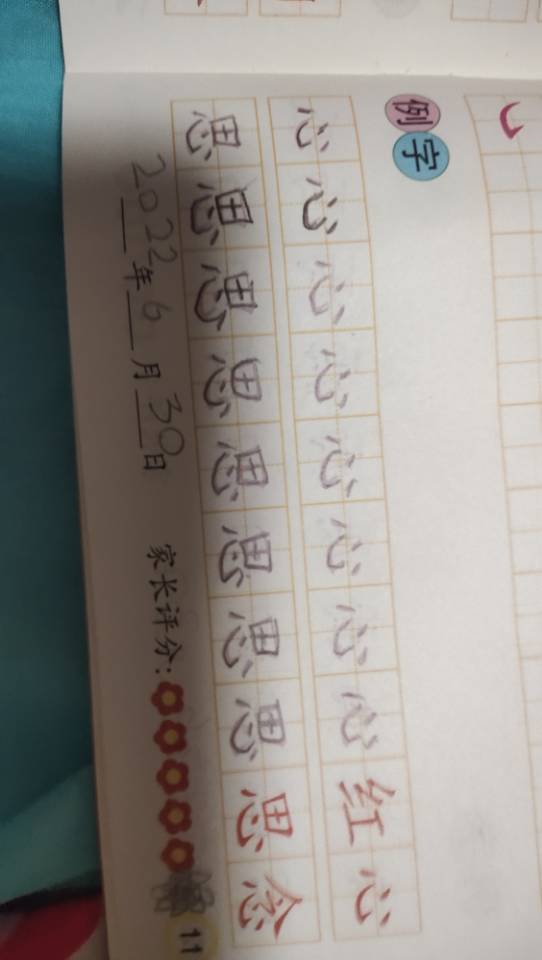 例字
心心心心心心心心红心
思思思思思思思思思念
2022年6月30日 家长评分:
11